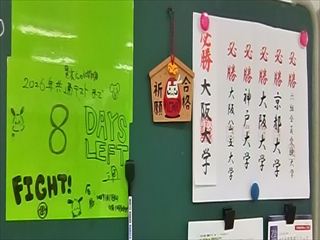 2026年共通テストまで
8
DAYS
LEFT
FIGHT!
合格
祈願
必勝大阪大学
必勝
京都大学
必勝
大阪大学
必勝
神戸大学
必勝
大阪公立大学